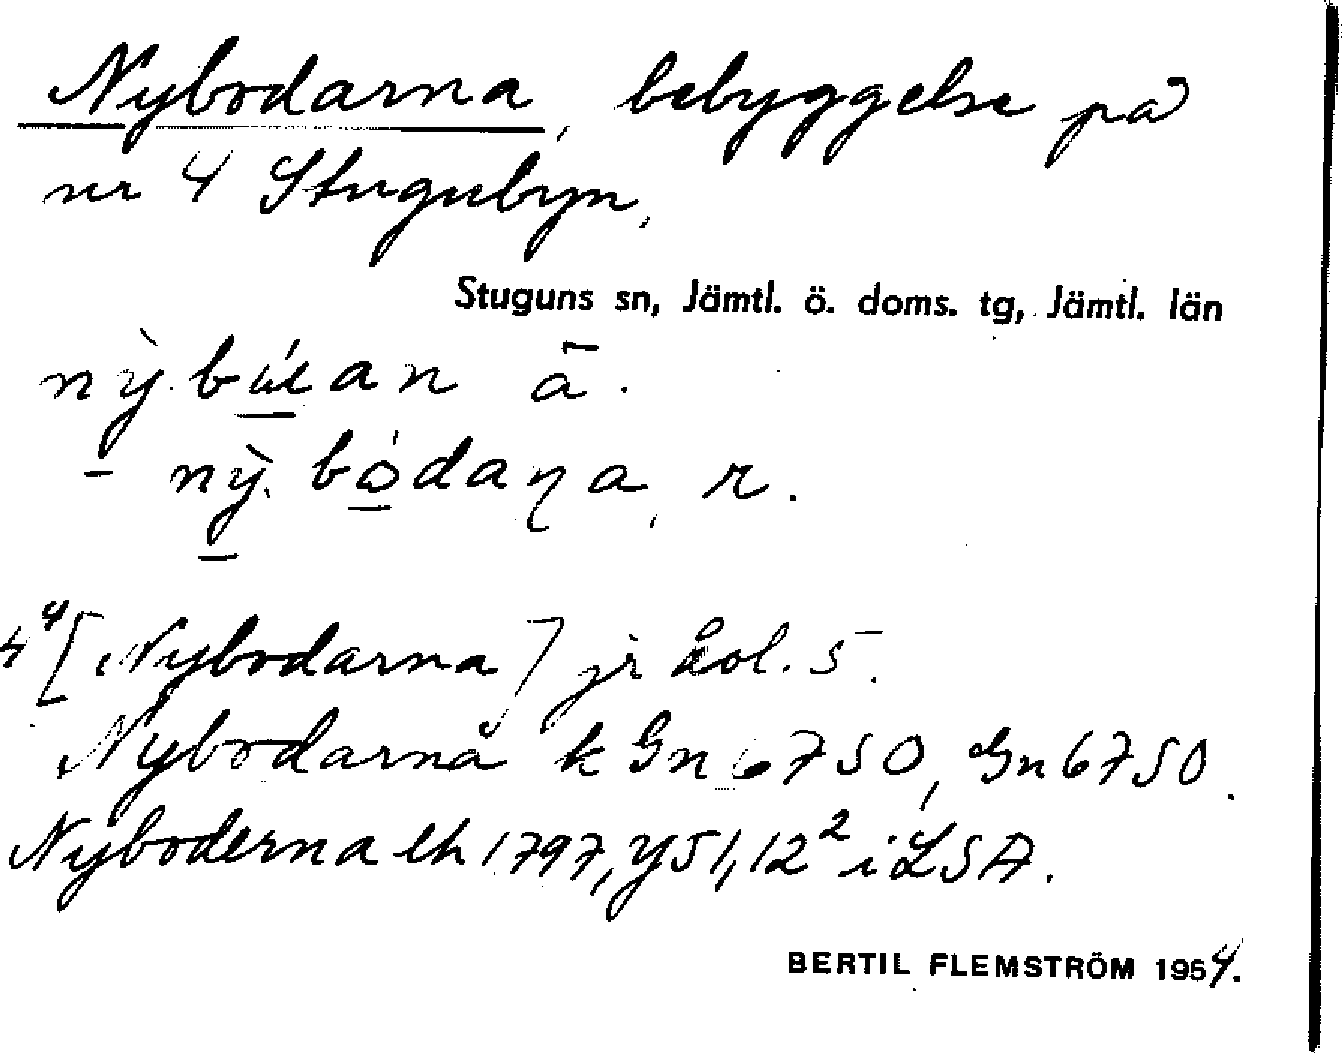 Nybodarna, bebyggelse på
nr 4 Stugubyn.
Stuguns sn, Jämtl. ö. doms. tg, Jämtl. län
ā.
r.
4⁴ [Nybodarna] jr kol. 5.
Nybodarnå k Gn 6750, Gn 6750.
Nyboderna lh 1797, Y51, 12² i LSA.
BERTIL FLEMSTRÖM 1964.